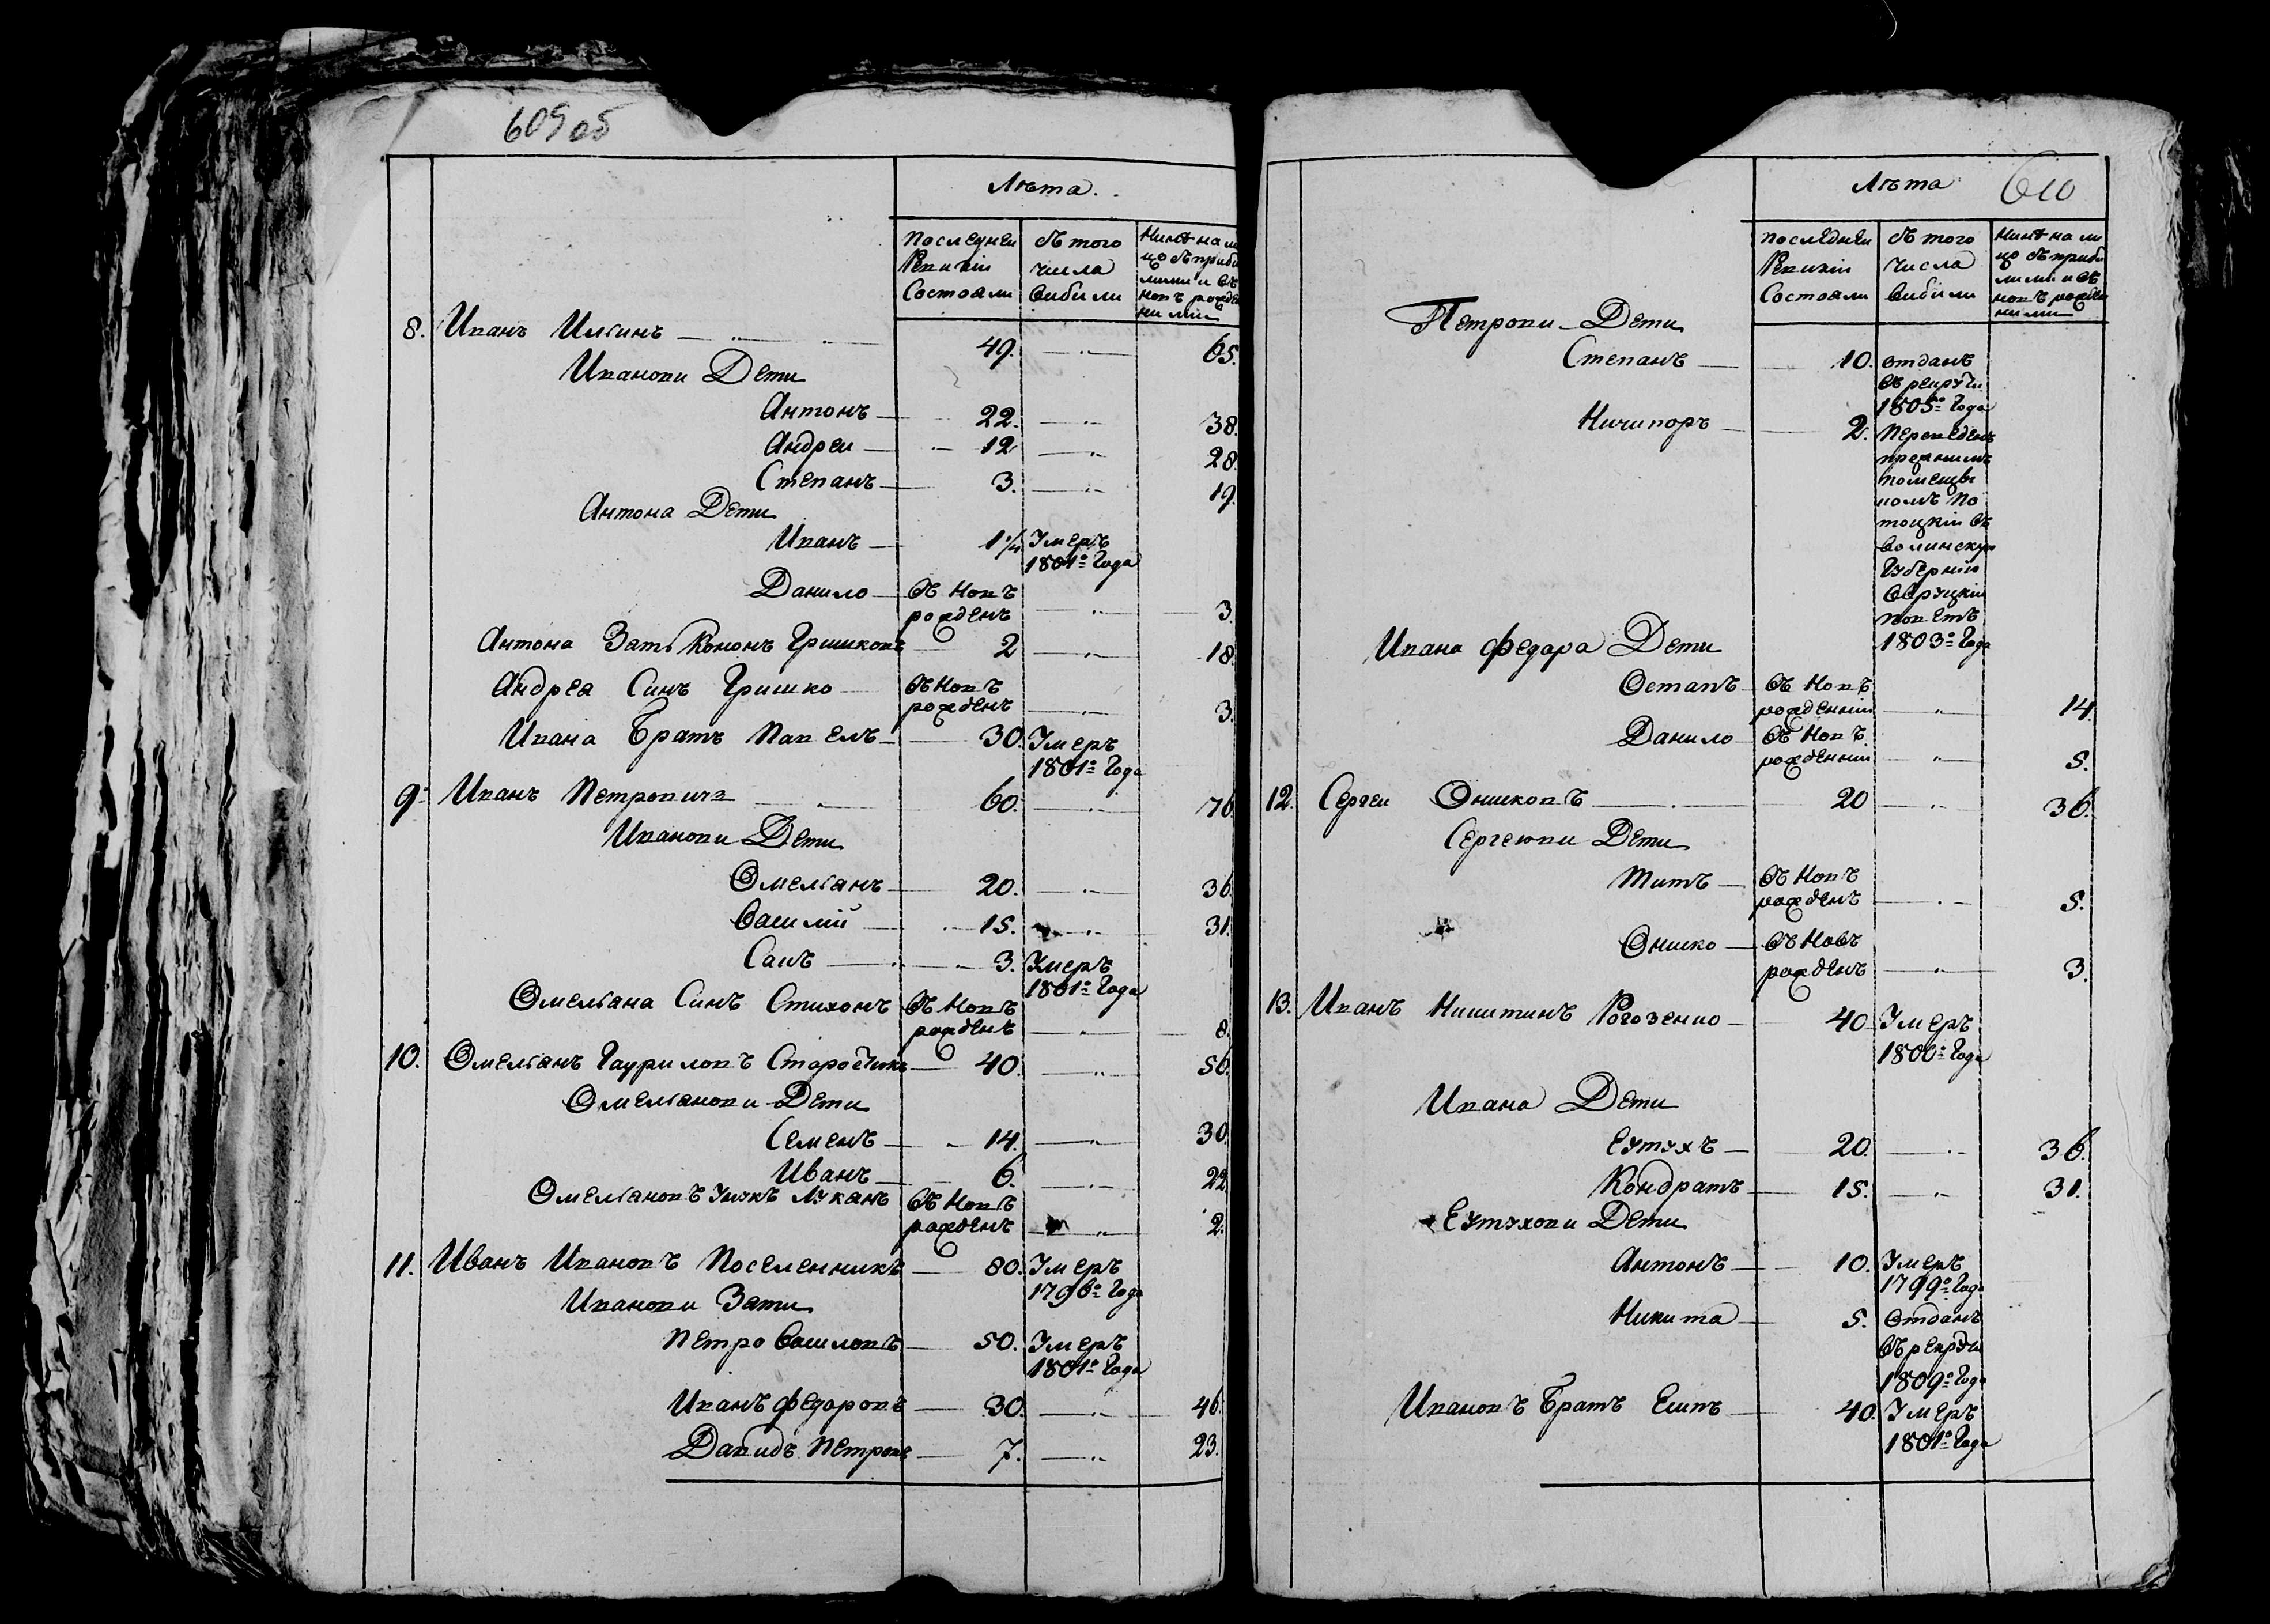 609 об
Лѣта.
Последнеи
Ревизіи
Состояли
Съ того
числа
выбили
Нинѣ на ли
цо съ приби
лими и въ
новъ рожде
ними
8. Иванъ Илиинъ 49. 65.
Иванови Дети
Антонъ 22. 38.
Андреи 12 28.
Степанъ 3. 19.
Антона Дети
Иванъ 1 ¼ Умеръ
1801го Года
Данило въ новъ
рожденъ 3.
Антона Зать Кононъ Гришковъ 2 18.
Андрея Синъ Гришко въ новъ
рожденъ 3.
Ивана Братъ Павелъ 30. Умеръ
1801го Года
9. Иванъ Петровичъ 60. 76.
Иванови Дети
Омелианъ 20. 36.
Василій 15. 31.
Савъ 3. Умеръ
1801го Года
Омелиана Синъ Стихонъ въ новъ
рожденъ 8.
10. Омелианъ Гауриловъ 40. 56.
Омелианови Дети
Семенъ 14. 30.
Иванъ 6. 22.
Омелиановъ унукъ Луканъ въ новъ
рожденъ 2.
11. Иванъ Ивановъ Поселенникъ 80. Умеръ
1796го Года
Иванови Зати
Петро Василовъ 50. Умеръ
1801го Года
Иванъ Федоровъ 30. 46.
Давидъ Петровъ 7. 23.
Лѣта
610
последнеи
Ревизіи
Состояли
Съ того
числа
выбили
Нинѣ на ли
цо съ приби
лими и въ
новъ рожде
ними
Петрови Дети
Степанъ 10. отданъ
въ рекруты
1805го Года
Ничипоръ 2. переведенъ
прежнимъ
помещи
комъ По
тоцкій въ
Волинскую
Губернію
Овруцкій
поветъ
1803го Года
Ивана Федара Дети
Остапъ въ новъ
рожденній 14.
Данило въ новъ
рожденній 5.
12. Сергеи Онисковъ 20 36.
Сергеюви Дети
Титъ въ новъ
рожденъ 5.
Ониско въ новъ
рожденъ 3.
13. Иванъ Никитинъ Рогозенко 40 Умеръ
1800го Года
Ивана Дети
Еутухъ 20. 36.
Кондратъ 15. 31.
Еутухови Дети
Антонъ 10. Умеръ
1799го Года
Никита 5. Отданъ
въ рекруты
1809го Года
Ивановъ Братъ 40. Умеръ
1801го Года